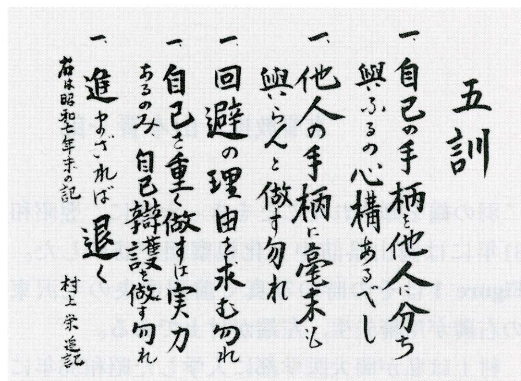 五訓
一、自己の手柄を他人に分ち
與ふるの心構あるべし
一、他人の手柄に毫末も
與らんと做す勿れ
一、回避の理由を求む勿れ
一、自己を重く做すは実力
あるのみ、自己辯護を做す勿れ
一、進まざれば退く
右は昭和七年末の記
村上栄追記